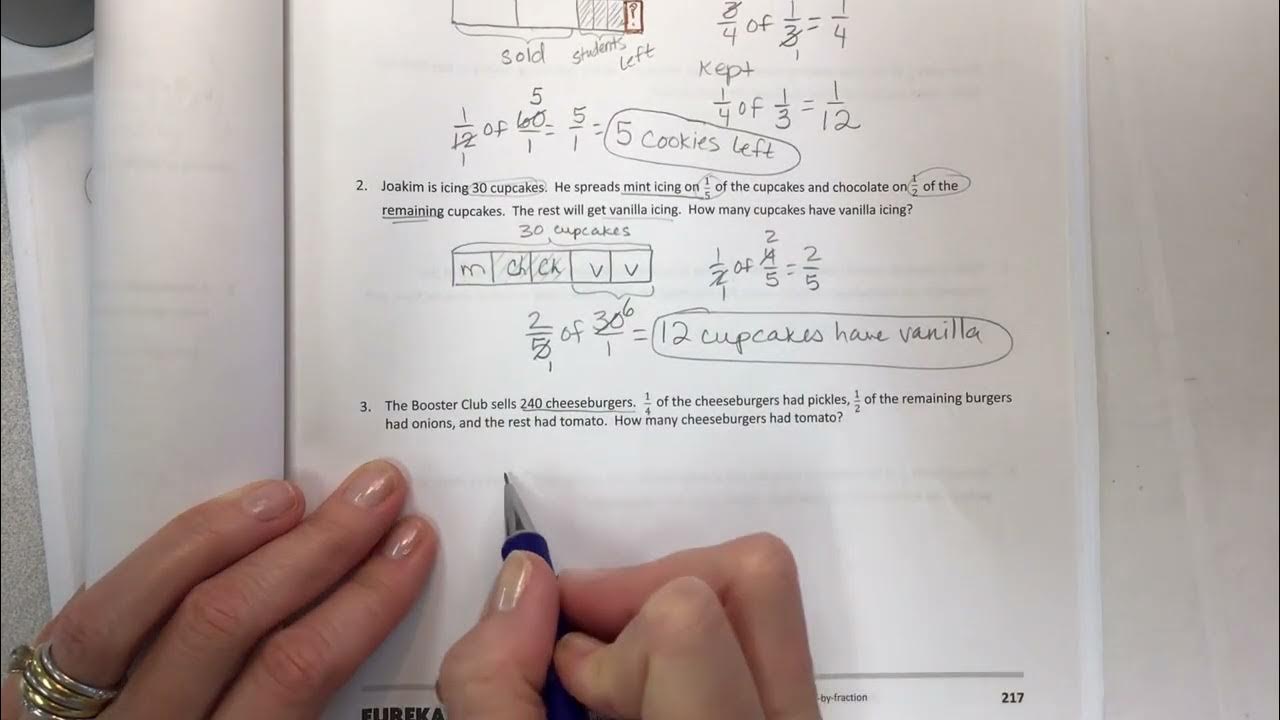 sold students left
3/4 of 1/3 = 1/4
1
Kept
1/4 of 1/3 = 1/12
5
1/12 of 60/1 = 5/1 = 5 Cookies left
1
2. Joakim is icing 30 cupcakes. He spreads mint icing on 1/5 of the cupcakes and chocolate on 1/2 of the
remaining cupcakes. The rest will get vanilla icing. How many cupcakes have vanilla icing?
30 cupcakes
m Ch Ck V V
2
1/2 of 4/5 = 2/5
1
2/5 of 30/1 = 12 cupcakes have vanilla
6
1
3. The Booster Club sells 240 cheeseburgers. 1/4 of the cheeseburgers had pickles, 1/2 of the remaining burgers
had onions, and the rest had tomato. How many cheeseburgers had tomato?
-by-fraction 217
EUREKA